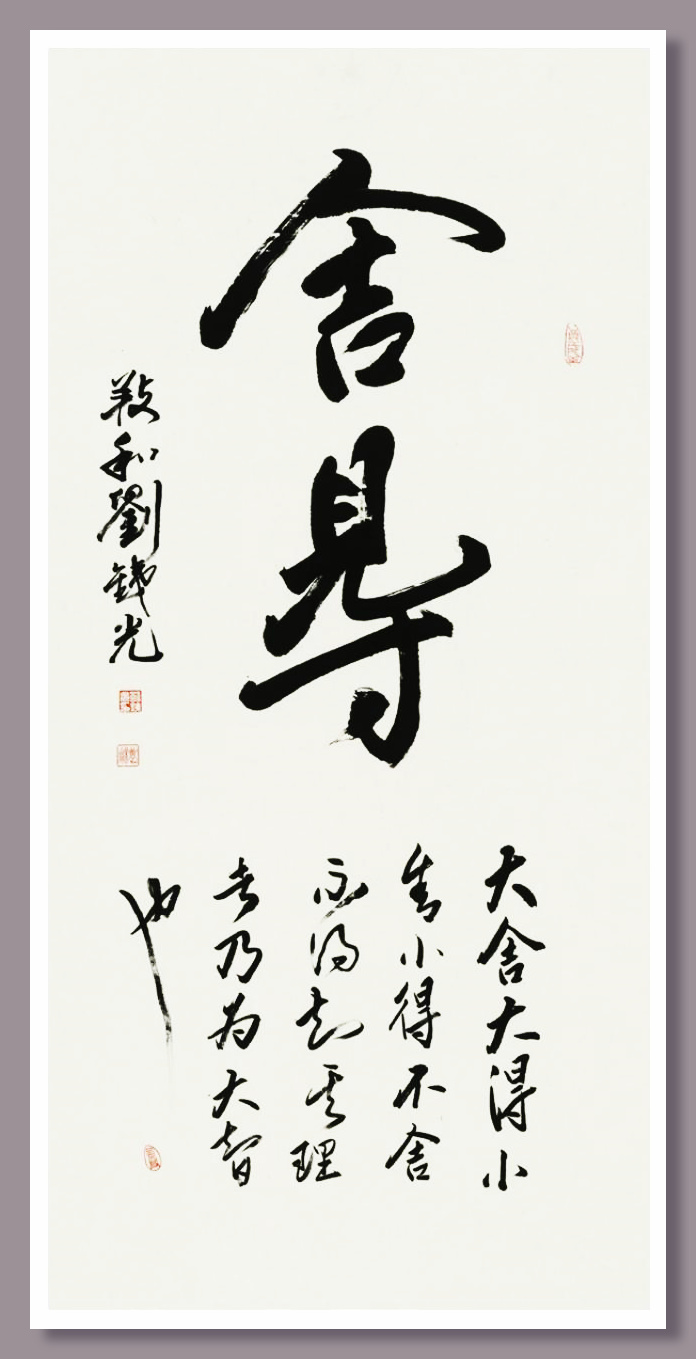 舍得
大舍大得小
舍小得不舍
不得知其理
者乃为大智
也
和劉光